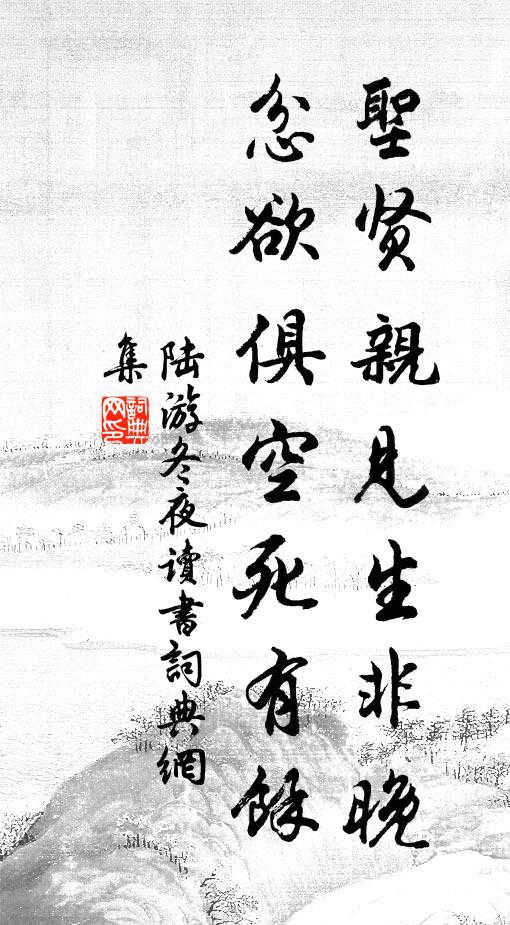 聖賢親見生非晚
忿欲俱空死有餘
陸游冬夜讀書詞典網
集
詞典
网印